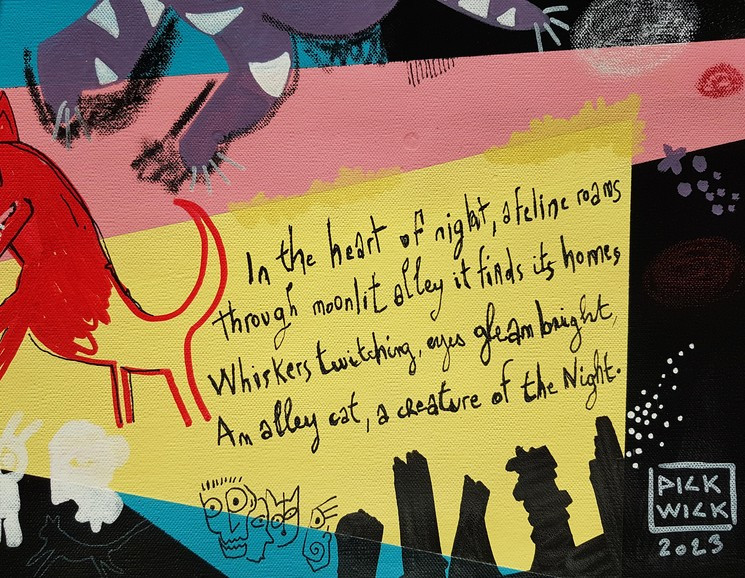 In the heart of night, a feline roams
through moonlit alley it finds its homes
Whiskers twitching, eyes gleam bright,
An alley cat, a creature of the Night.
PICK
WICK
2023